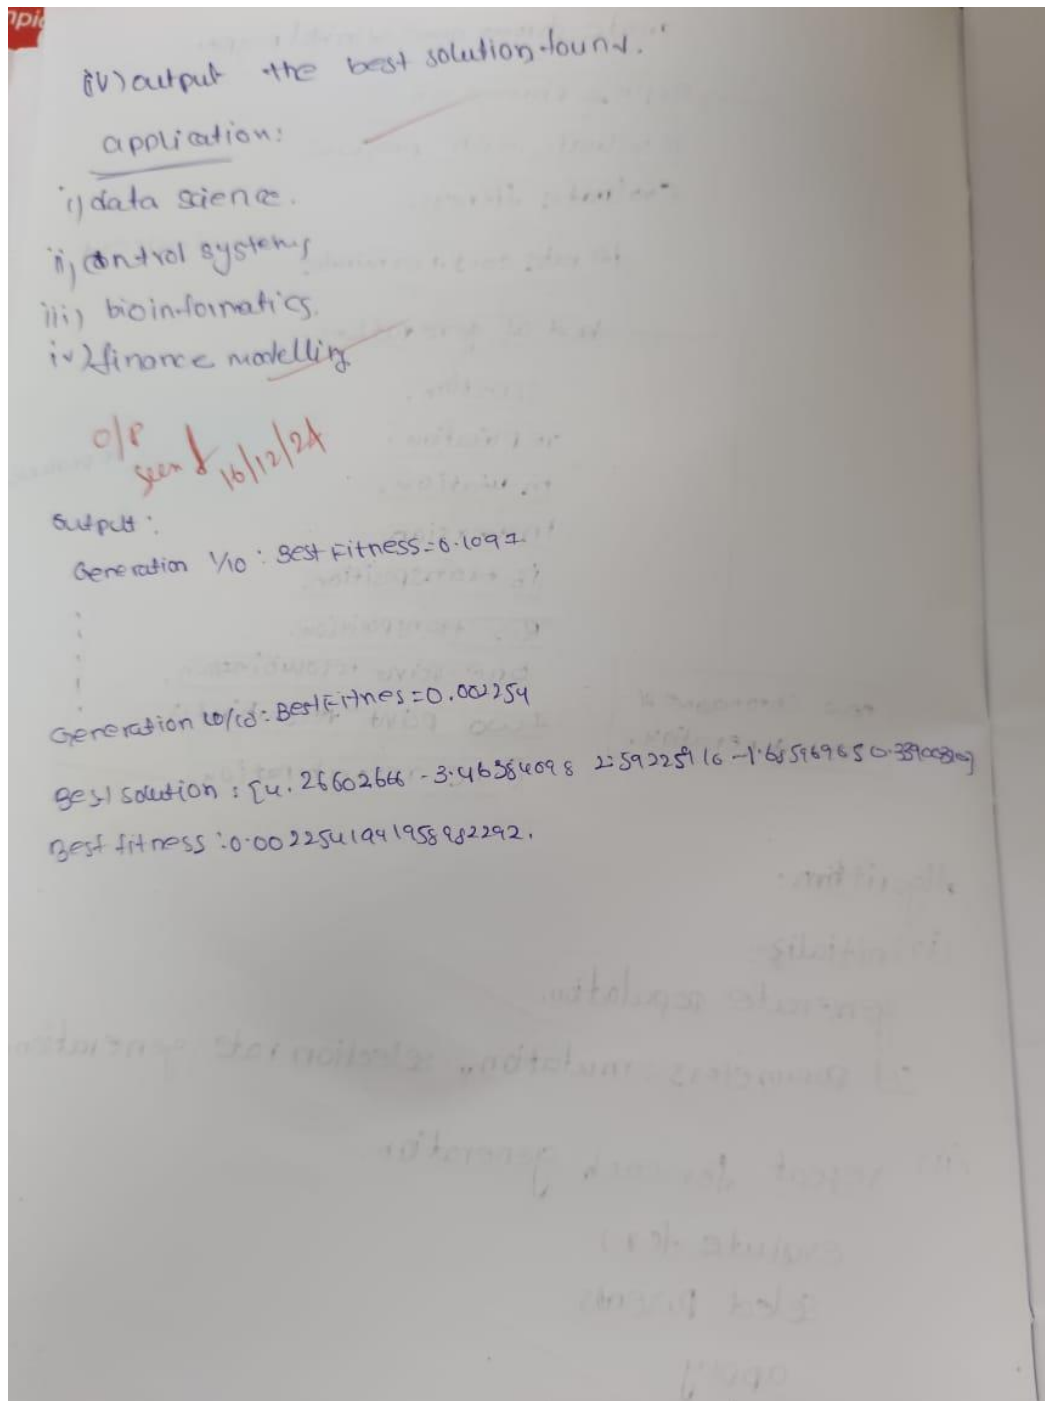 (iv) output the best solution found.
application:
i) data science.
ii) control systems
iii) bioinformatics.
iv) finance modelling
O/P
seen
16/12/24
output:
Generation 1/10 : Best Fitness = 0.1097
Generation 10/10 : Best Fitnes = 0.002254
Best solution : [4.26602666 -3.46384098 2.59225916 -1.68596965
Best fitness : 0.0022541941958982292.